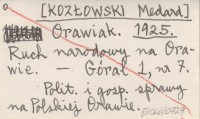 [KOZŁOWSKI Medard]
Orawiak. 1925.
Ruch narodowy na Ora-
wie. — Góral 1, nr 7.
Polit. i gosp. sprawy
na Polskiej Orawie.